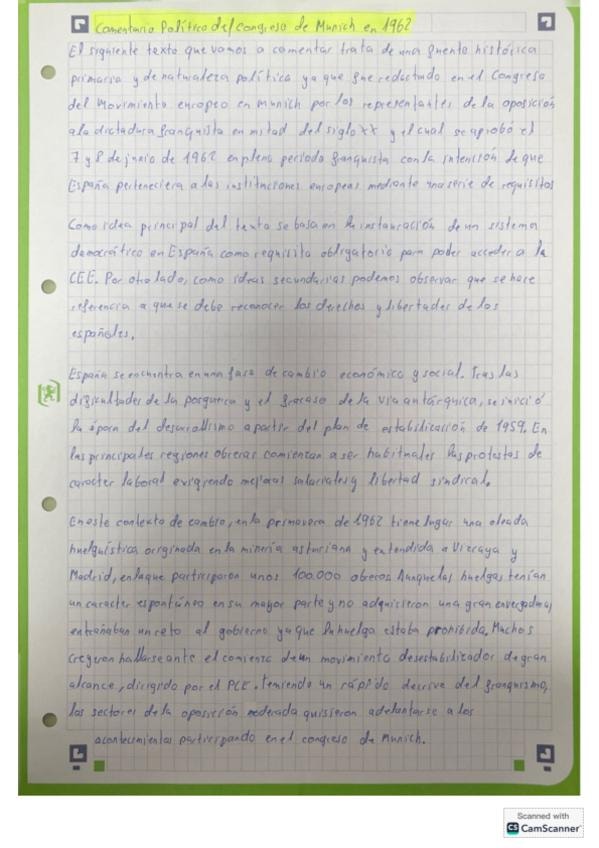 Comentario Político del Congreso de Munich en 1962
El siguiente texto que vamos a comentar trata de una fuente histórica
primaria y de naturaleza política ya que fue redactado en el Congreso
del Movimiento europeo en Munich por los representantes de la oposición
a la dictadura franquista en mitad del siglo XX y el cual se aprobó el
7 y 8 de junio de 1962 en pleno periodo franquista con la intención de que
España perteneciera a las instituciones europeas mediante una serie de requisitos
Como idea principal del texto se basa en la instauración de un sistema
democrático en España como requisito obligatorio para poder acceder a la
CEE. Por otro lado, como ideas secundarias podemos observar que se hace
referencia a que se debe reconocer los derechos y libertades de los
españoles.
España se encuentra en una fase de cambio económico y social. Tras las
dificultades de la posguerra y el fracaso de la vía autárquica, se inició
la época del desarrollismo a partir del plan de estabilización de 1959. En
las principales regiones obreras comienzan a ser habituales las protestas de
caracter laboral exigiendo mejoras salariales y libertad sindical.
En este contexto de cambio, en la primavera de 1962 tiene lugar una oleada
huelguística originada en la minería asturiana y extendida a Vizcaya y
Madrid, en la que participaron unos 100.000 obreros. Aunque las huelgas tenían
un caracter espontáneo en su mayor parte y no adquisieron una gran envergadura,
entrañaban un reto al gobierno ya que la huelga estaba prohibida. Muchos
creyeron hallarse ante el comienzo de un movimiento desestabilizador de gran
alcance, dirigido por el PCE. Temiendo un rápido declive del franquismo,
los sectores de la oposición moderada quisieron adelantarse a los
acontecimientos participando en el congreso de Munich.
Scanned with
CS CamScanner